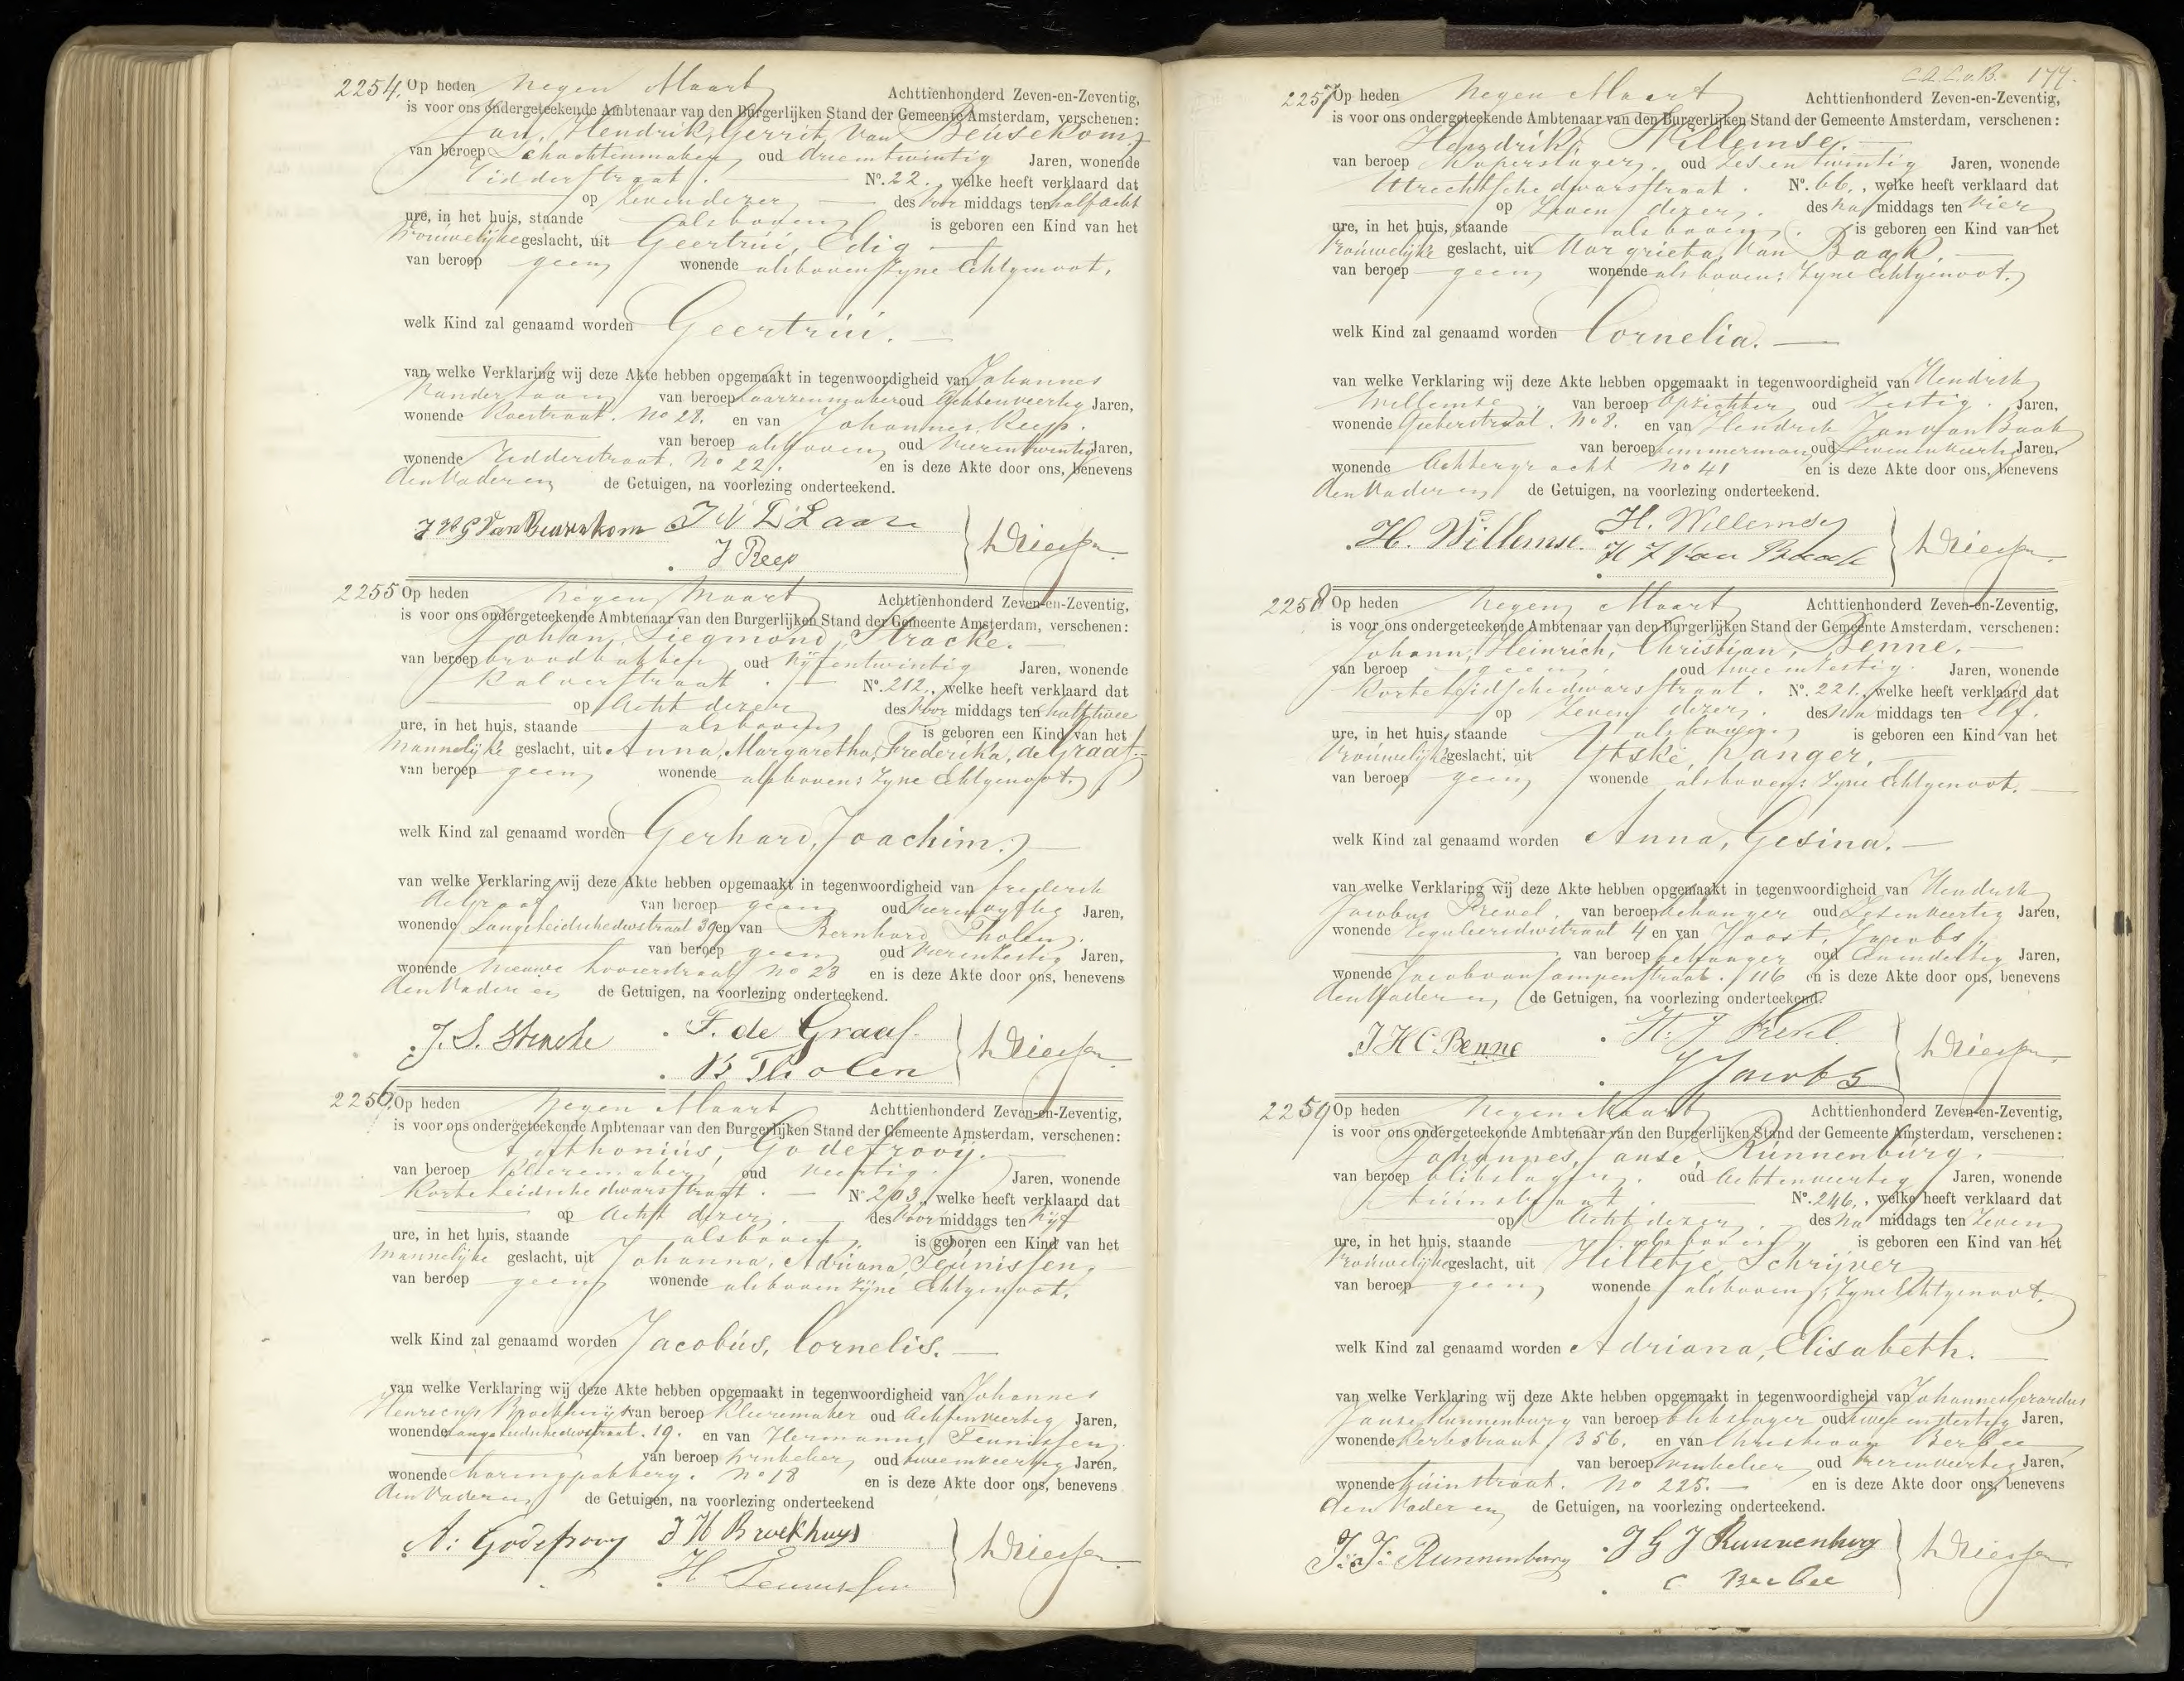 2254. Op heden Negen Maart Achttienhonderd Zeven-en-Zeventig,
is voor ons ondergeteekende Ambtenaar van den Burgerlijken Stand der Gemeente Amsterdam, verschenen:
Jan, Hendrik, Gerrit, van Beusekom,
van beroep Schachtenmaker oud drieentwintig Jaren, wonende
Ridderstraat. No. 22., welke heeft verklaard dat
op Zevendezer des voor middags ten half acht
ure, in het huis, staande alsboven is geboren een Kind van het
Vrouwelijke geslacht, uit Geertrui, Edig
van beroep geen wonende alsboven Zyne Echtgenoot.
welk Kind zal genaamd worden Geertrui.
van welke Verklaring wij deze Akte hebben opgemaakt in tegenwoordigheid van Johannes
van beroep Laarzenmaker oud Achtenveertig Jaren,
wonende No 28. en van Johannes Reep.
van beroep alsboven oud Vierentwintig Jaren,
wonende Ridderstraat. No 22. en is deze Akte door ons, benevens
den Vader en de Getuigen, na voorlezing onderteekend.
J H G Van Beusekom J V D Laan
J Reep
2255 Op heden Negen Maart Achttienhonderd Zeven-en-Zeventig,
is voor ons ondergeteekende Ambtenaar van den Burgerlijken Stand der Gemeente Amsterdam, verschenen:
Johan, Siegmond, Stracke.
van beroep broodbakker oud Vijfentwintig Jaren, wonende
Kalverstraat. No. 212., welke heeft verklaard dat
op Acht dezer des Voor middags ten half twee
ure, in het huis, staande alsboven is geboren een Kind van het
Mannelijke geslacht, uit Anna, Margaretha, Frederika, de Graaf.
van beroep geen wonende alsboven: Zyne Echtgenoot.
welk Kind zal genaamd worden Gerhard, Joachim.
van welke Verklaring wij deze Akte hebben opgemaakt in tegenwoordigheid van Frederik
de Graaf van beroep geen oud Jaren,
wonende Langeleidschedwstraat 39 en van Bernhard Tholen.
van beroep geen oud Vierenzestig Jaren,
wonende Nieuwe Looierstraat No 23 en is deze Akte door ons, benevens
den Vader en de Getuigen, na voorlezing onderteekend.
J. S. Stracke F. de Graaf.
B Tholen
2256. Op heden Negen Maart Achttienhonderd Zeven-en-Zeventig,
is voor ons ondergeteekende Ambtenaar van den Burgerlijken Stand der Gemeente Amsterdam, verschenen:
Anthonius, Godefrooij.
van beroep Kleermaker oud Veertig. Jaren, wonende
Korteleidschedwarsstraat. No. 203., welke heeft verklaard dat
op Acht dezer. des Voor middags ten Vijf
ure, in het huis, staande alsboven. is geboren een Kind van het
Mannelijke geslacht, uit Johanna, Adriana, Teunissen,
van beroep geen wonende alsboven Zyne Echtgenoot.
welk Kind zal genaamd worden Jacobus, Cornelis.
van welke Verklaring wij deze Akte hebben opgemaakt in tegenwoordigheid van Johannes
Henricus Broekhuijs van beroep Kleermaker oud Achtenveertig Jaren,
wonende Langeleidschedwstraat. 19. en van Hermanus Teunissen
van beroep Winkelier, oud tweeenveertig Jaren,
wonende Haringpakkery. No 18 en is deze Akte door ons, benevens
den Vader en de Getuigen, na voorlezing onderteekend
A. Godefrooy J H Broekhuys
H Teunissen
C.A.C.v.B. 177.
2257 Op heden Negen Maart Achttienhonderd Zeven-en-Zeventig,
is voor ons ondergeteekende Ambtenaar van den Burgerlijken Stand der Gemeente Amsterdam, verschenen:
Hendrik, Willemse.
van beroep Koperslager. oud Zesentwintig Jaren, wonende
Utrechtschedwarsstraat. No. 66., welke heeft verklaard dat
op Zeven dezer. des Na middags ten Vier
ure, in het huis, staande alsboven. is geboren een Kind van het
Vrouwelijke geslacht, uit Margrieta, van Baak.
van beroep geen wonende alsboven: Zyne Echtgenoot.
welk Kind zal genaamd worden Cornelia.
van welke Verklaring wij deze Akte hebben opgemaakt in tegenwoordigheid van Hendrik
Willemse van beroep Oprichter oud Zestig. Jaren,
wonende No 8. en van Hendrik Jan van Baak
van beroep Timmerman oud Jaren,
wonende Achtergracht No 41 en is deze Akte door ons, benevens
den Vader en de Getuigen, na voorlezing onderteekend.
H. Willemse. H. Willemse
H J van Baak
2258 Op heden Negen Maart Achttienhonderd Zeven-en-Zeventig,
is voor ons ondergeteekende Ambtenaar van den Burgerlijken Stand der Gemeente Amsterdam, verschenen:
Johann, Heinrich, Christian, Benne.
van beroep geen. oud Jaren, wonende
Korteleidschedwarsstraat. No. 221., welke heeft verklaard dat
op Zeven dezer. des Na middags ten Elf.
ure, in het huis, staande alsboven. is geboren een Kind van het
Vrouwelijke geslacht, uit Ytske, Langer.
van beroep geen wonende alsboven: Zyne Echtgenoot.
welk Kind zal genaamd worden Anna, Gesina.
van welke Verklaring wij deze Akte hebben opgemaakt in tegenwoordigheid van Hendrik
Jacobus Prevel. van beroep behanger oud Zesenveertig Jaren,
wonende Reguliersdwstraat 4 en van Joost, Jacobs.
van beroep behanger oud Jaren,
wonende Jacobvan Campenstraat. 116 en is deze Akte door ons, benevens
den Vader en de Getuigen, na voorlezing onderteekend.
J H C Benne H. J Prevel.
J Jacobs
2259 Op heden Negen Maart Achttienhonderd Zeven-en-Zeventig,
is voor ons ondergeteekende Ambtenaar van den Burgerlijken Stand der Gemeente Amsterdam, verschenen:
Johannes, Janse, Runnenburg.
van beroep blikslager. oud Achtenveertig Jaren, wonende
Tuinstraat. No. 246., welke heeft verklaard dat
op Acht dezer. des Na middags ten Zeven
ure, in het huis, staande alsboven is geboren een Kind van het
Vrouwelijke geslacht, uit Hilletje, Schrijver
van beroep geen wonende alsboven; Zyne Echtgenoot.
welk Kind zal genaamd worden Adriana, Elisabeth.
van welke Verklaring wij deze Akte hebben opgemaakt in tegenwoordigheid van Johannes Gerardus
Janse Runnenburg van beroep blikslager oud tweeendertig Jaren,
wonende Kerkstraat 356. en van Christiaan Berbee
van beroep Winkelier oud Vierenveertig Jaren,
wonende Tuinstraat. No 225. en is deze Akte door ons, benevens
den Vader en de Getuigen, na voorlezing onderteekend.
J: J: Runnenburg J G J Runnenburg
C Berbee